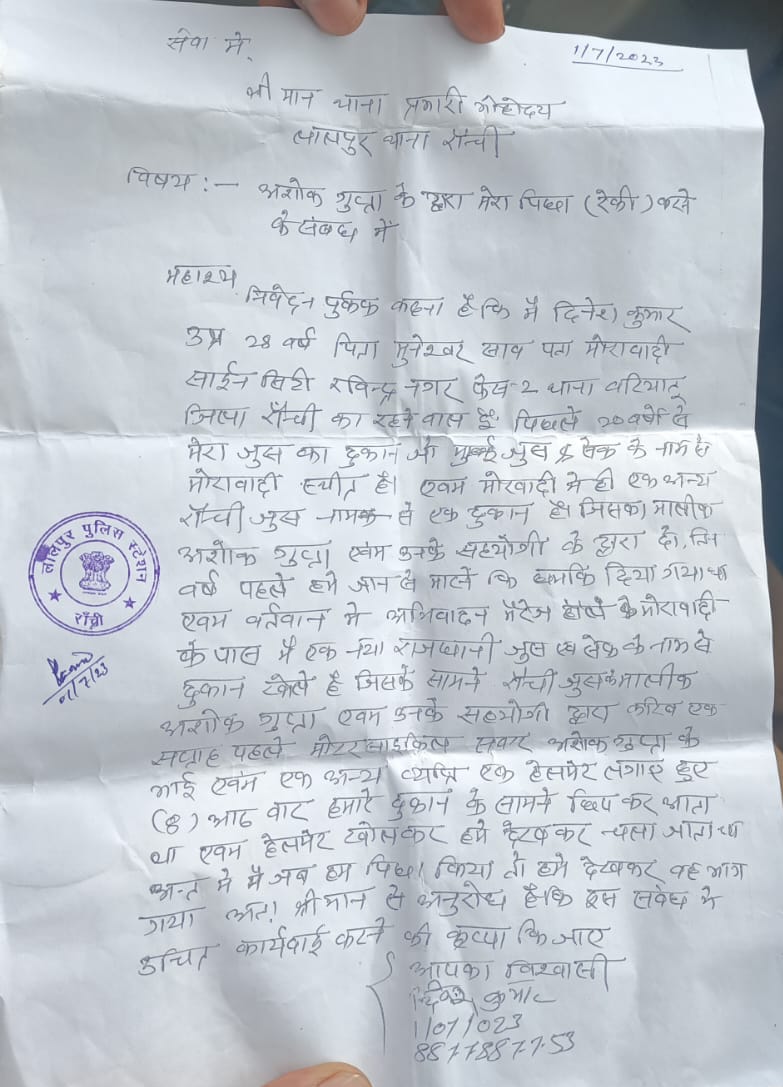 सेवा में,
1/7/2023
श्री मान थाना प्रभारी मोहोदय
लालपुर थाना राँची
विषय :- अशोक गुप्ता के द्वारा मेरा पिछा (रेकी) करने
के संबध में
महाश्य,
निवेदन पुर्वक कहना है कि मै दिनेश कुमार
उम्र 28 वर्ष पिता मुनेश्वर साव पता मोरावादी
साईन सिटी रविन्द्र नगर फेस-2 थाना वरियातू
जिला राँची का रहने वाला हूँ। पिछले 20 वर्षो से
मेरा जुस का दुकान जो जुस सेक के नाम से
मोरावादी स्थीत है। एवम मोरवादी मे ही एक अन्य
राँची जुस नामक से एक दुकान है। जिसका मालीक
अशोक गुप्ता एवम उनके सहयोगी के द्वारा दो, तिन
वर्ष पहले हमे जान से मारने कि धमकि दिया गया था
एवम वर्तवान मे अभिवादन मैरेज होल के मोरावादी
के पास मै एक नया राजधानी जुस एवं सेक के नाम से
दुकान खोले है जिसके सामने राँची जुस के मालीक
अशोक गुप्ता एवम उनके सहयोगी द्वारा करिब एक
सप्ताह पहले मोटरसाइकिल सवार अशोक गुप्ता के
भाई एवंम एक अन्य व्यक्ति एक हेलमेट लगाए हुए
(8) आठ बार हमारे दुकान के सामने छिप कर आता
था एवम हेलमेट खोलकर हमे देखकर चला जाता था
अन्त मे मै जब हम पिछा किया तो हमे देखकर वह भाग
गया अतः श्रीमान से अनुरोध है कि इस संवध मे
उचित कार्यवाई करने की कृप्या कि जाए
आपका विश्वासी
दिनेश कुमार
1/07/023
8877887753
लालपुर पुलिस स्टेशन
राँची
01/7/23